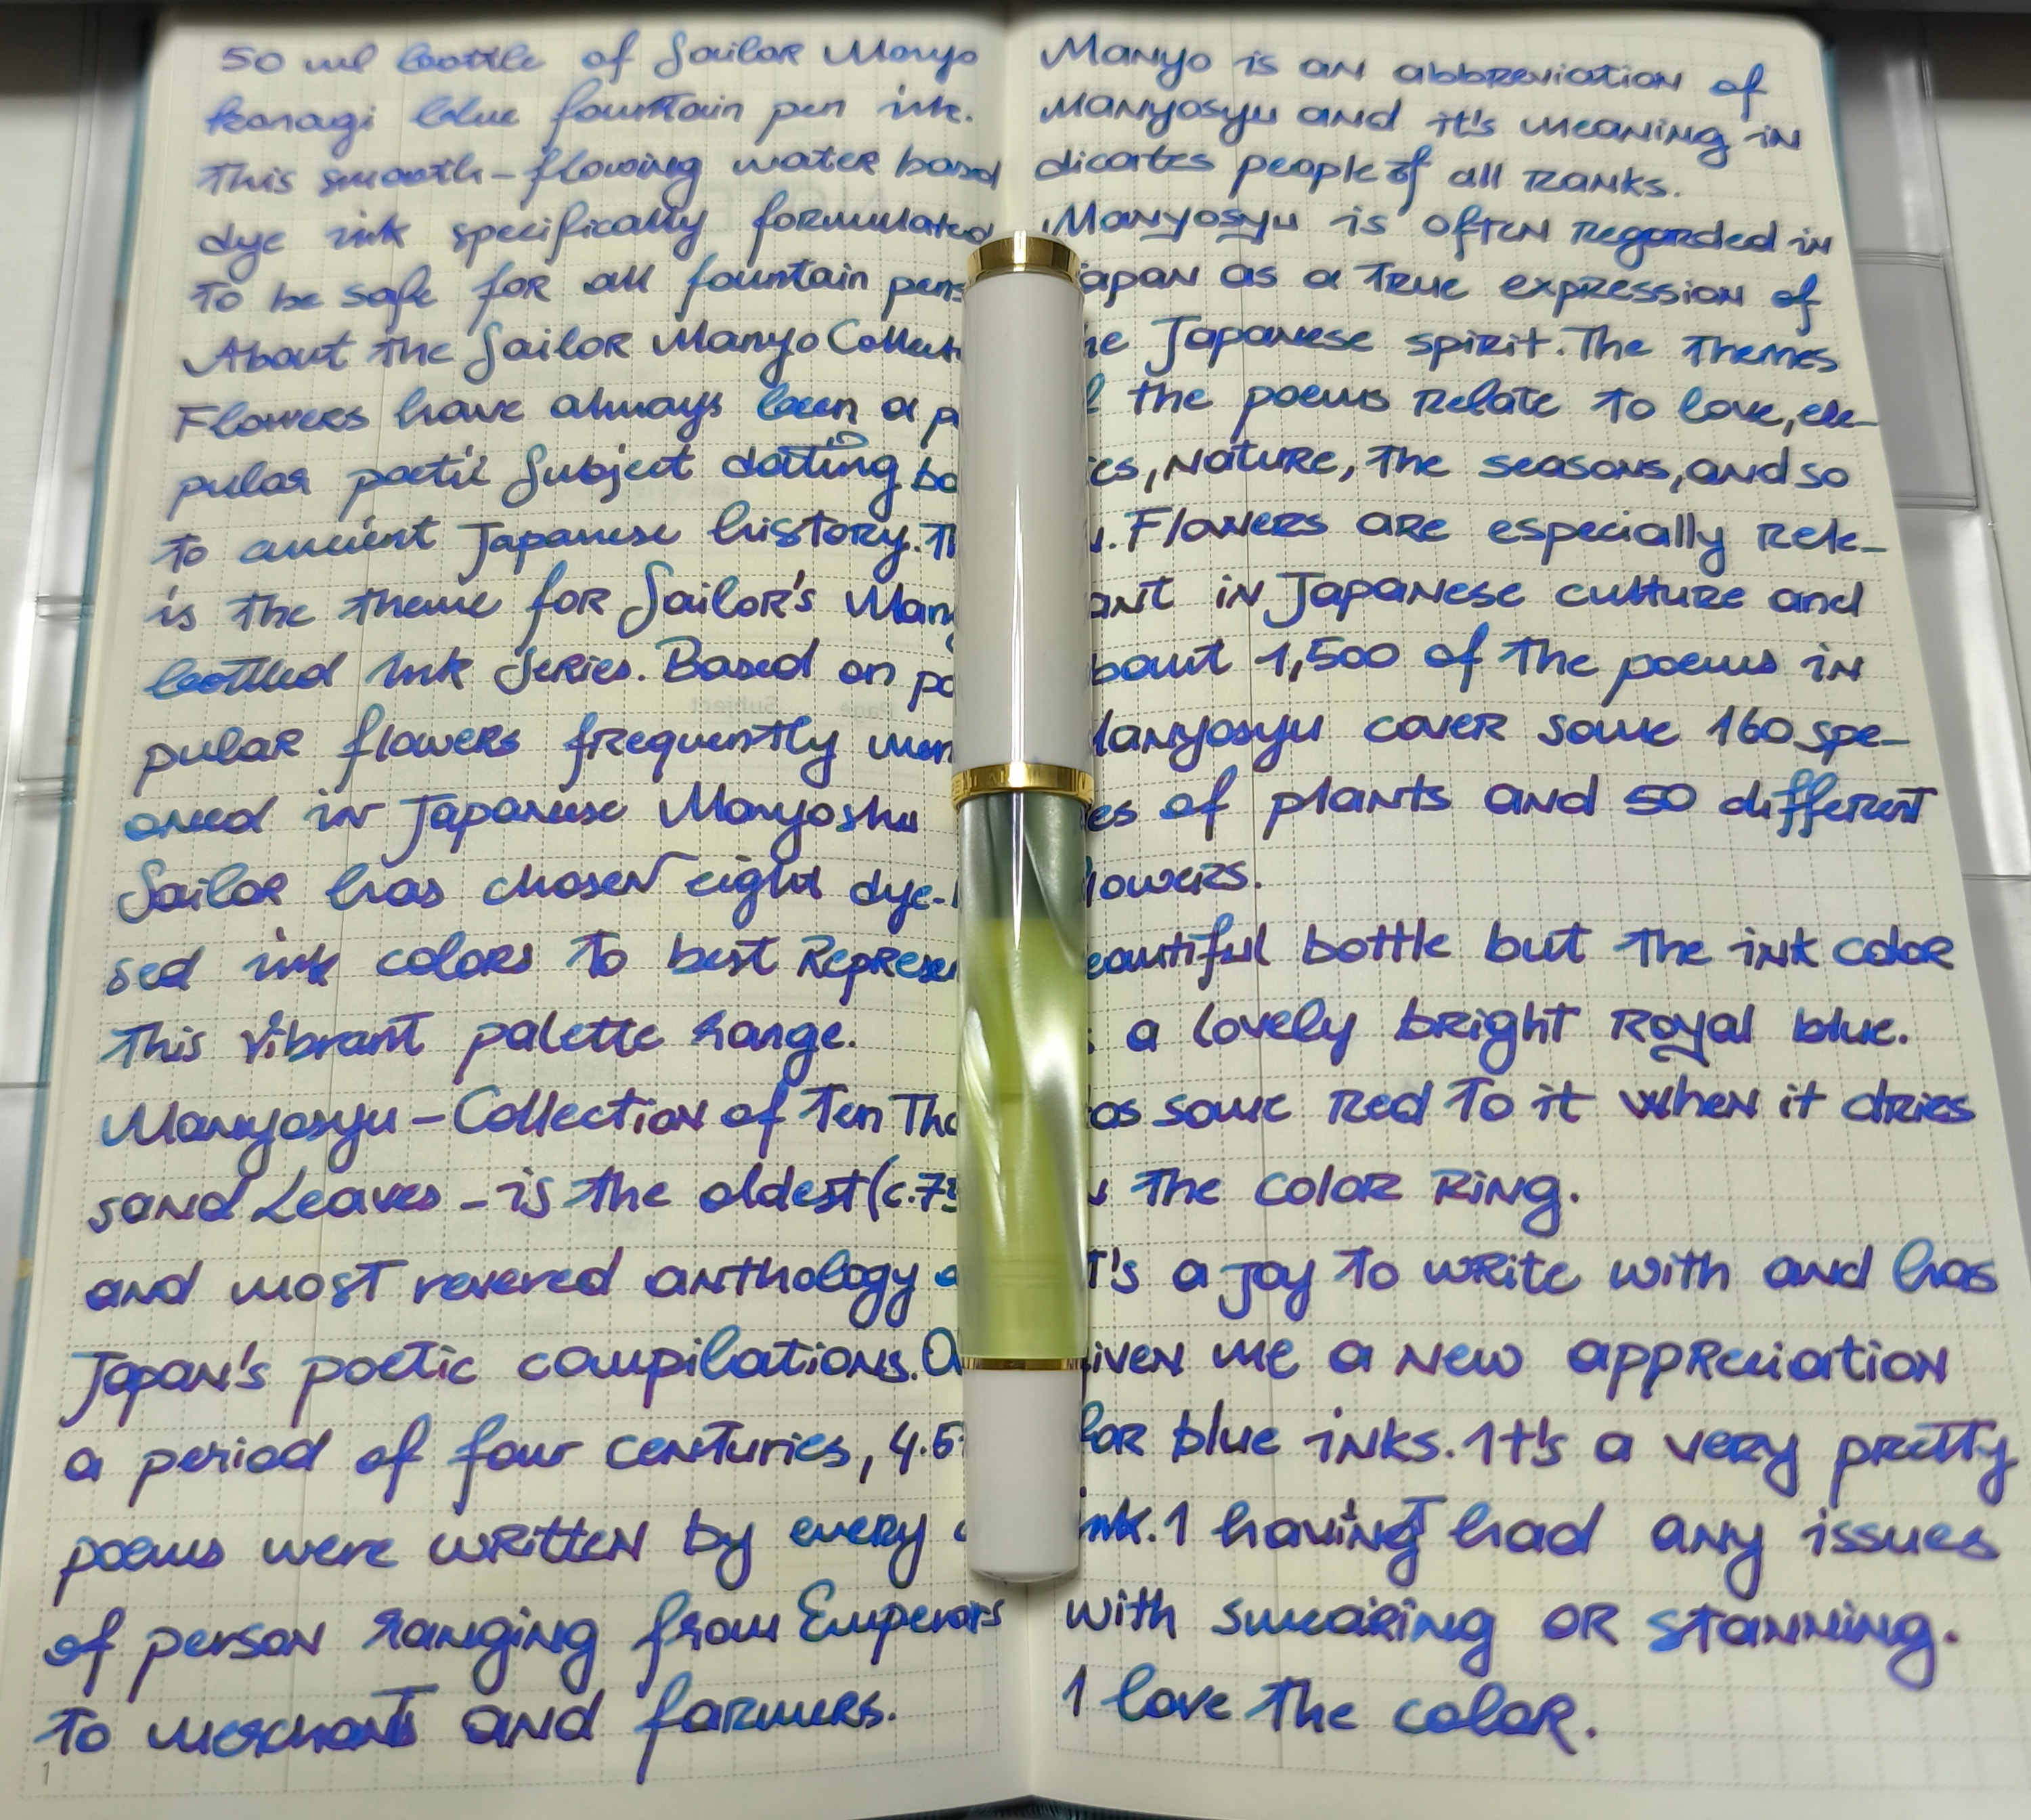 50 ml bottle of Sailor Manyo
konagi blue fountain pen ink.
This smooth-flowing water based
dye ink specifically formulated
To be safe for all fountain pens
About the Sailor Manyo Collect
Flowers have always been a p
pular poetic Subject dating ba
To ancient Japanese history. Th
is the theme for Sailor's Many
bottled Ink Series. Based on po
pular flowers frequently men
oned in Japanese Manyoshu
Sailor has chosen eight dye-
sed ink colors to best Represen
This vibrant palette range.
Manyosyu - Collection of Ten Tho
sand Leaves - is the oldest (c.75
and most revered anthology o
Japan's poetic compilations. O
a period of four centuries, 4.5
poems were written by every
of person ranging from Emperors
To merchant and farmers.
1
Manyo is an abbreviation of
Manyosyu and it's meaning in
dicates people of all ranks.
Manyosyu is often regarded in
apan as a True expression of
he Japanese spirit. The Themes
the poems relate to love, ele-
es, nature, the seasons, and so
. Flowers are especially rele-
ant in Japanese culture and
bout 1,500 of the poems in
anyosyu cover some 160 spe-
es of plants and 50 different
lowers.
eautiful bottle but the ink color
a lovely bright Royal blue.
as some red To it when it dries
the color ring.
T's a joy to write with and has
iven me a new appreciation
for blue inks. It's a very pretty
ink. I having had any issues
with smearing or stanning.
I love the color.